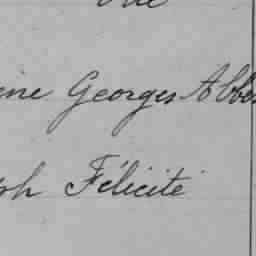 ene Georges Abbe
ph Félicité